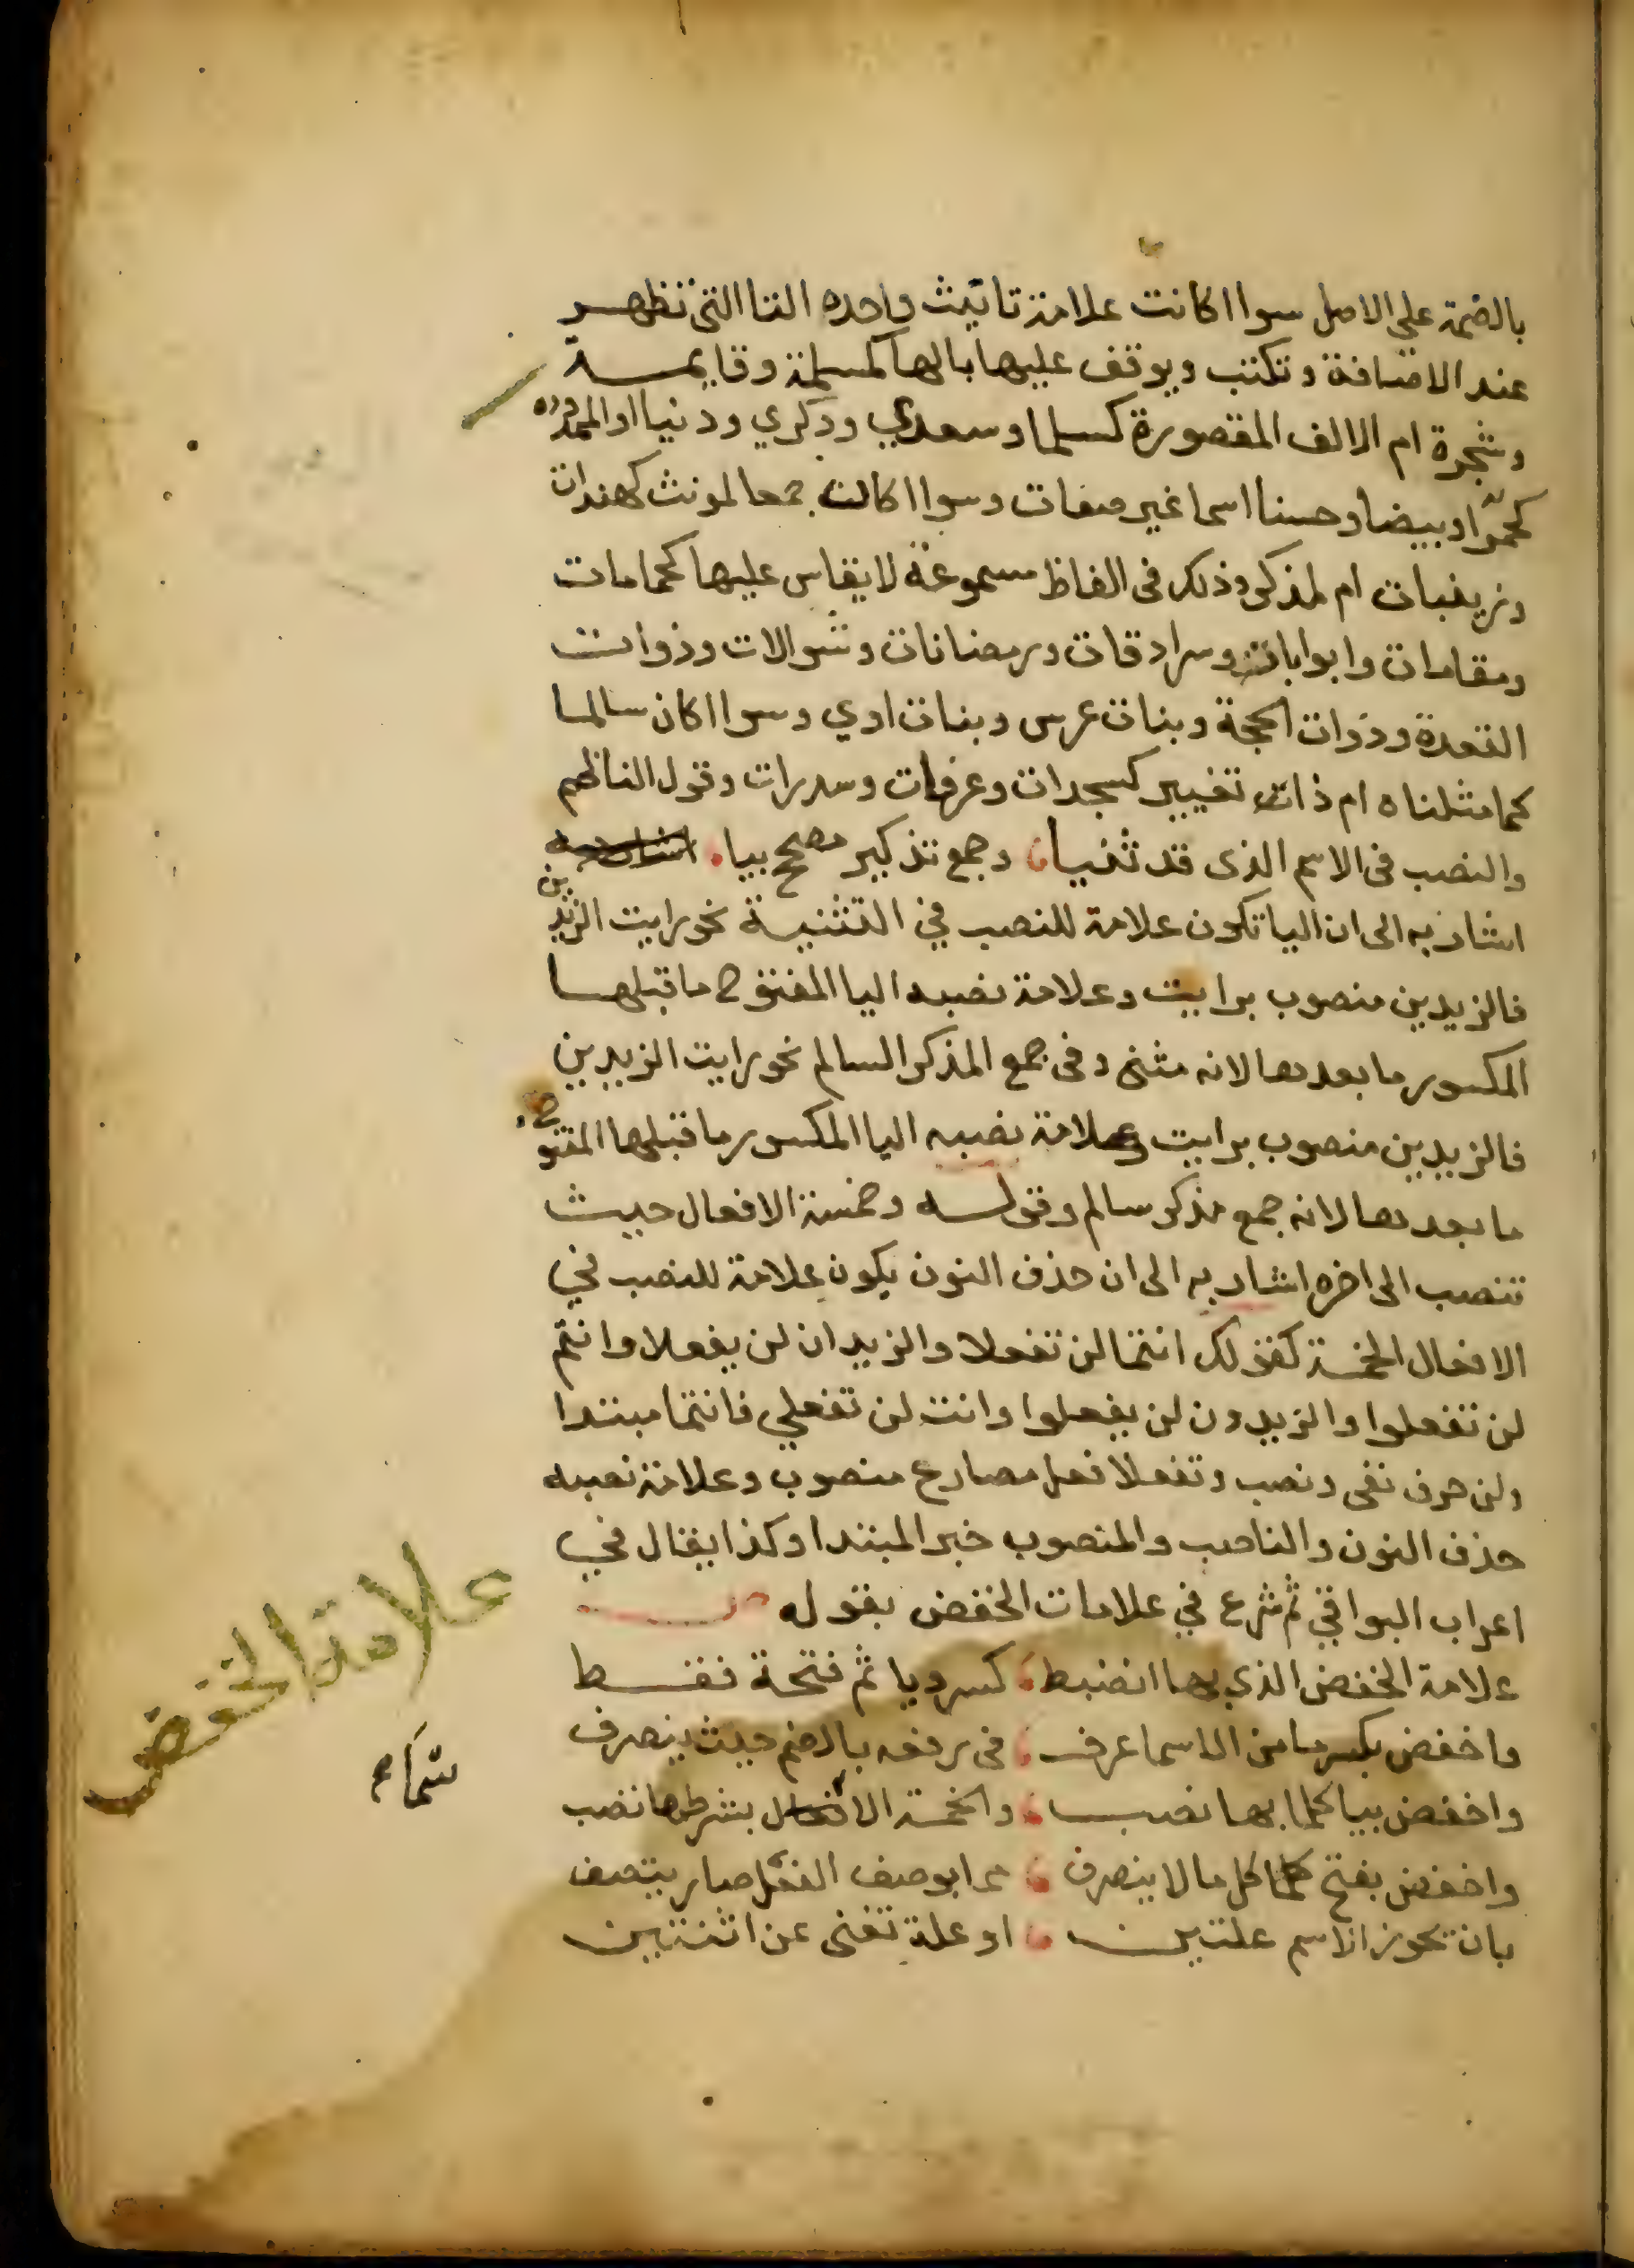 بالضمة على الاصل سوا اكانت علامة تانيث واحده التا التى تظهر
عند الاضافة و تكتب ويوقف عليها بالها كمسلمة وقايمة
وشجرة ام الالف المقصورة كسلما وسعدي وذكري ودنيا او الممدوده
كحمرا وبيضا وحسنا اسما غير صفات وسوا اكانت جمعا لمونث كهندات
وزينبات ام لمذكر وذلك فى الفاظ مسموعة لا يقاس عليها كحمامات
ومقامات وابوابات وسرادقات ورمضانات وشوالات وذوات
القعدة وذوات الحجة وبنات عرس وبنات اوي وسوا اكان سالما
كما مثلناه ام ذات تغيير كسجدات وغرفات وسدرات وقول الناظم
والنصب فى الاسم الذى قد ثنيا وجمع تذكير مصحح بيا
اشار به الى ان اليا تكون علامة للنصب في التثنية نحو رايت الزيدين
فالزيدين منصوب برايت وعلامة نصبه اليا المفتوح ما قبلها
المكسور ما بعدها لانه مثنى وفى جمع المذكر السالم نحو رايت الزيدين
فالزيدين منصوب برايت وعلامة نصبه اليا المكسور ما قبلها المفتوح
ما بعدها لانه جمع مذكر سالم وقوله وخمسة الافعال حيث
تنصب الى اخره اشار به الى ان حذف النون يكون علامة للنصب في
الافعال الخمسة كقولك انتما لن تفعلا والزيدان لن يفعلا وانتم
لن تفعلوا والزيدون لن يفعلوا وانت لن تفعلي فانتما مبتدا
ولن حرف نفى ونصب وتفعلا فعل مضارع منصوب وعلامة نصبه
حذف النون والناصب والمنصوب خبر المبتدا وكذا يقال في
اعراب البواقي ثم شرع في علامات الخفض بقوله ص
علامة الخفض الذي بها انضبط كسر ويا ثم فتحة فقط
واخفض بكسر ما من الاسما عرف فى رفعه بالضم حيث ينصرف
واخفض بيا كلما بها نصب والخمسة الاسما بشرطها تصب
واخفض بفتح كل ما لا ينصرف مما بوصف الفعل صار يتصف
بان تحوز الاسم علتين او علة تغنى عن اثنتين
علامة الخفض